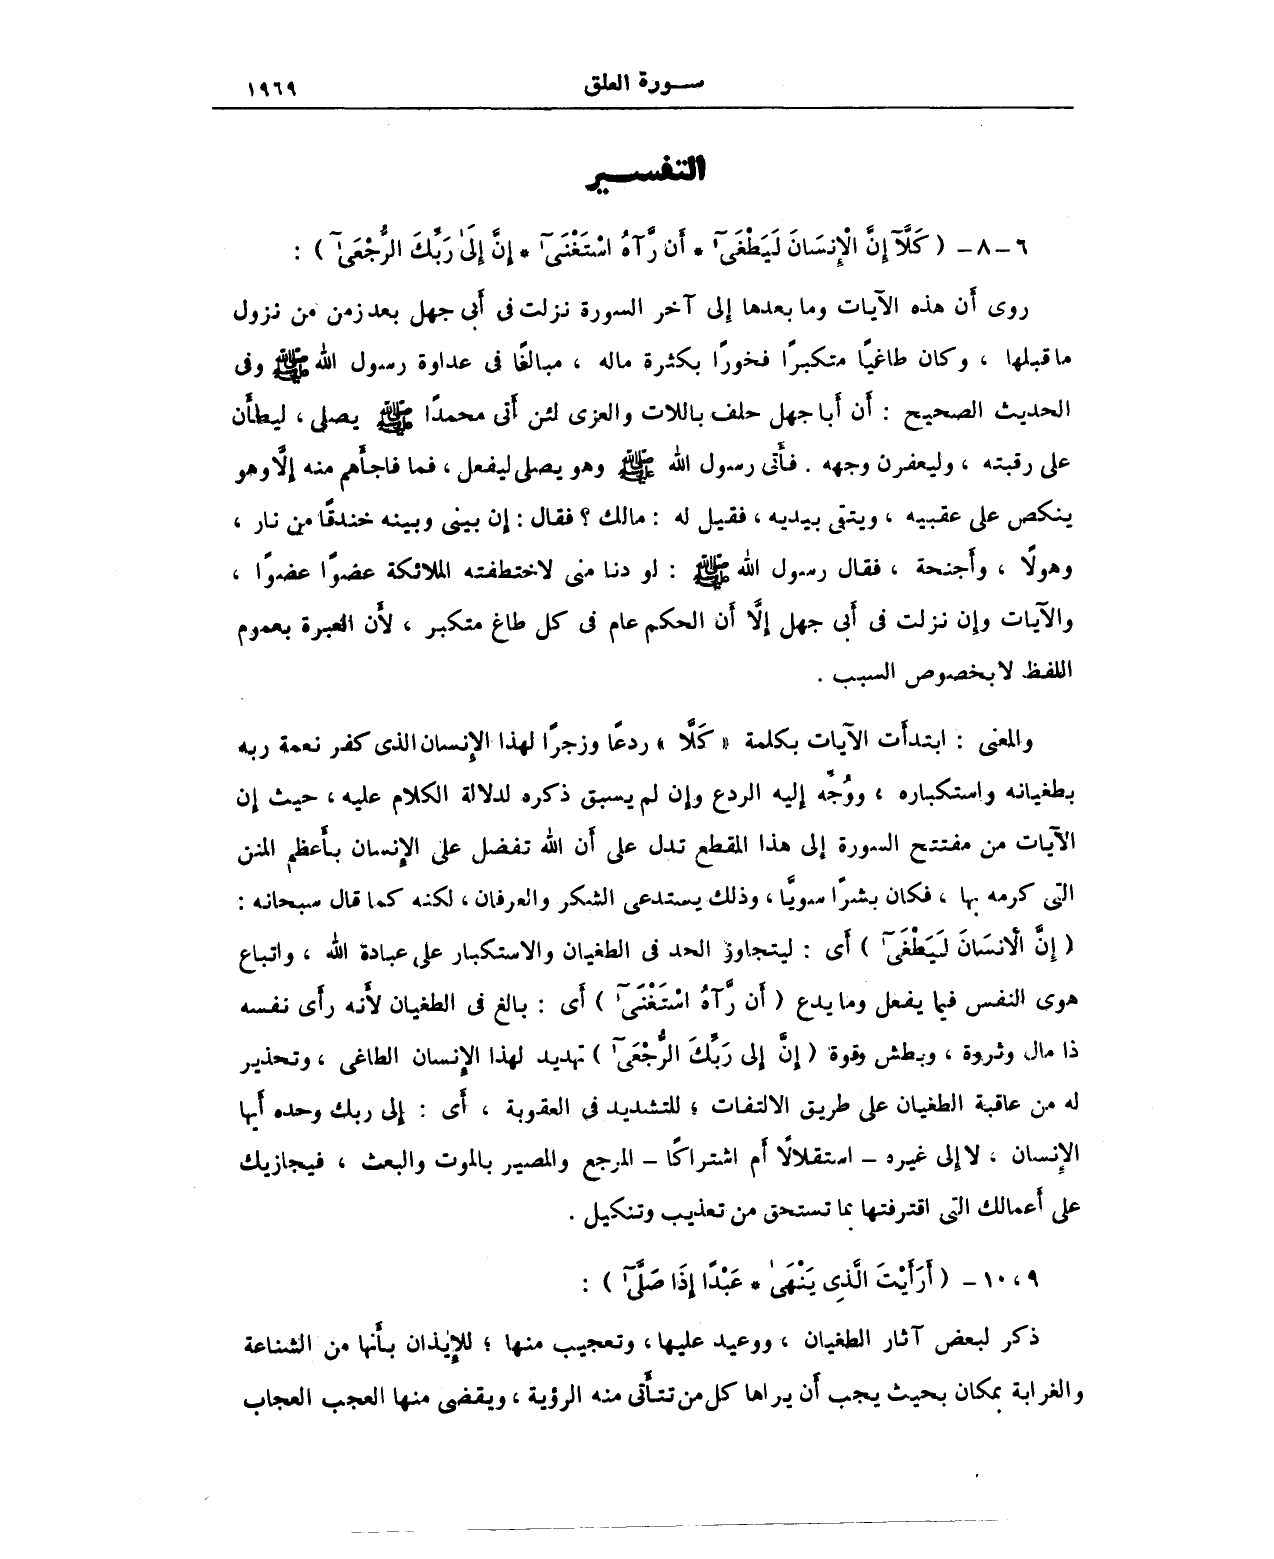 سورة العلق ١٩٦٩
التفسير
٦-٨- ( كَلَّآ إِنَّ الْإِنسَانَ لَيَطْغَىٰٓ * أَن رَّآهُ اسْتَغْنَىٰٓ * إِنَّ إِلَىٰ رَبِّكَ الرُّجْعَىٰٓ ) :
روى أن هذه الآيات وما بعدها إلى آخر السورة نزلت فى أبى جهل بعد زمن من نزول
ما قبلها ، وكان طاغيًا متكبرًا فخورًا بكثرة ماله ، مبالغًا فى عداوة رسول الله ﷺ وفى
الحديث الصحيح : أن أبا جهل حلف باللات والعزى لئن أتى محمدًا ﷺ يصلى ، ليطأن
على رقبته ، وليعفرن وجهه . فأتى رسول الله ﷺ وهو يصلى ليفعل ، فما فاجأهم منه إلَّا وهو
ينكص على عقبيه ، ويتقى بيديه ، فقيل له : مالك ؟ فقال : إن بينى وبينه خندقًا من نار ،
وهولًا ، وأجنحة ، فقال رسول الله ﷺ : لو دنا منى لاختطفته الملائكة عضوًا عضوًا ،
والآيات وإن نزلت فى أبى جهل إلَّا أن الحكم عام فى كل طاغ متكبر ، لأن العبرة بعموم
اللفظ لا بخصوص السبب .
والمعنى : ابتدأت الآيات بكلمة « كَلَّا » ردعًا وزجرًا لهذا الإنسان الذى كفر نعمة ربه
بطغيانه واستكباره ، ووُجِّه إليه الردع وإن لم يسبق ذكره لدلالة الكلام عليه ، حيث إن
الآيات من مفتتح السورة إلى هذا المقطع تدل على أن الله تفضل على الإنسان بأعظم المنن
التى كرمه بها ، فكان بشرًا سويًّا ، وذلك يستدعى الشكر والعرفان ، لكنه كما قال سبحانه :
( إِنَّ الْانسَانَ لَيَطْغَىٰٓ ) أى : ليتجاوز الحد فى الطغيان والاستكبار على عبادة الله ، واتباع
هوى النفس فيما يفعل وما يدع ( أَن رَّآهُ اسْتَغْنَىٰٓ ) أى : بالغ فى الطغيان لأنه رأى نفسه
ذا مال وثروة ، وبطش وقوة ( إِنَّ إلى رَبِّكَ الرُّجْعَىٰٓ ) تهديد لهذا الإنسان الطاغى ، وتحذير
له من عاقبة الطغيان على طريق الالتفات ؛ للتشديد فى العقوبة ، أى : إلى ربك وحده أيها
الإنسان ، لا إلى غيره - استقلالًا أم اشتراكًا - المرجع والمصير بالموت والبعث ، فيجازيك
على أعمالك التى اقترفتها بما تستحق من تعذيب وتنكيل .
٩ ، ١٠ - ( أَرَأَيْتَ الَّذِى يَنْهَىٰ * عَبْدًا إِذَا صَلَّىٰٓ ) :
ذكر لبعض آثار الطغيان ، ووعيد عليها ، وتعجيب منها ؛ للإيذان بأنها من الشناعة
والغرابة بمكان بحيث يجب أن يراها كل من تتأتى منه الرؤية ، ويقضى منها العجب العجاب